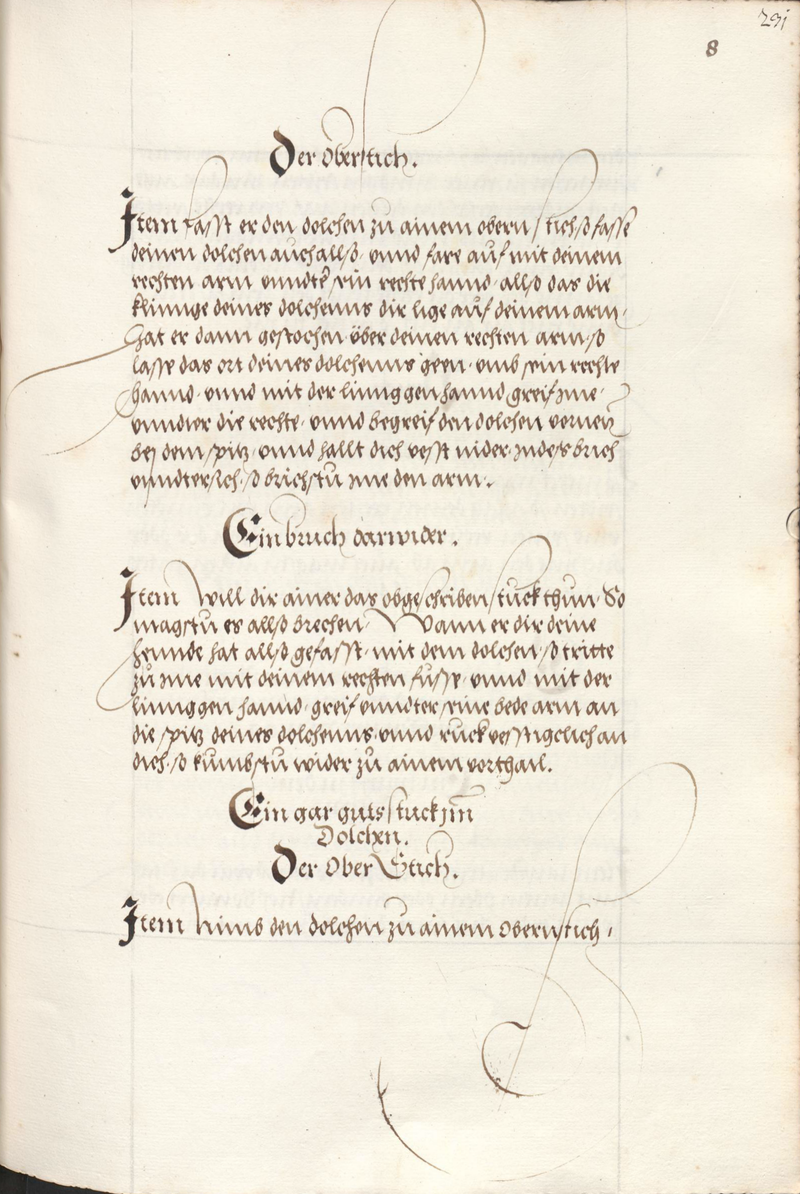 231
8
Der oberstich.
Item fasst er den dolchen zu ainem obern stich, so fasse
deinen dolchen auch allso, vnnd fare auf mit deinem
rechten arm vnndter sein rechte hannd, allso das die
klinnge deines dolchenns dir lige auf deinem arm,
hat er dann gestochen über deinen rechten arm, so
lasse das ort deines dolchenns geen, vmb sein rechte
hannd, vnnd mit der linnggen hannd greif jme,
vnndter die rechte, vnnd begreif den dolchen vornen
bej dem spitz, vnnd hallt dich vesst nider, jndess brich
vnndtersich, so brichstu jme den arm.
Ein bruch darwider.
Item Will dir ainer das obgeschriben stuck thun, So
magstu es allso brechen, Wann er dir deine
hennde hat allso gefasst, mit dem dolchen, so tritte
zu jme mit deinem rechten fusse, vnnd mit der
linnggen hannd, greif vnndter seine bede arm an
die spitz deines dolchenns, vnnd ruck vesstigclich an
dich, so kumbstu wider zu ainem vorthail.
Ein gar guts stuck jm
Dolchen.
Der Ober Stich.
Item Nimb den dolchen zu ainem Obernstich,